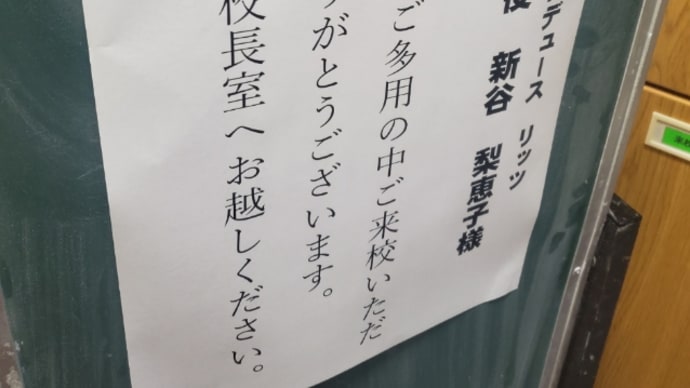 デュース リッツ
新谷 梨恵子様
ご多用の中ご来校いただ
がとうございます。
校長室へお越しください。